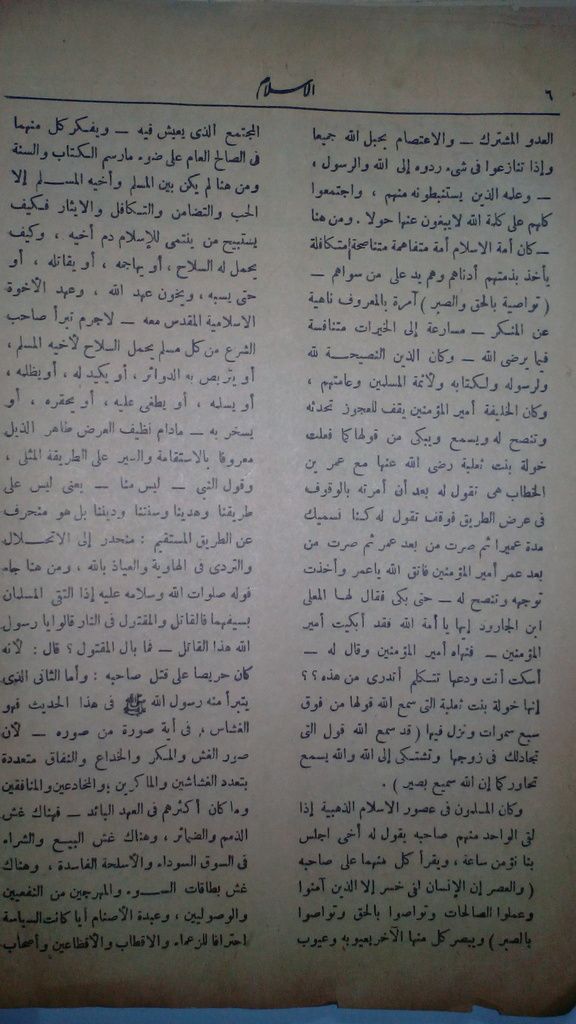 ٦
الاسلام
العدو المشترك — والاعتصام بحبل الله جميعا
وإذا تنازعوا فى شىء ردوه إلى الله والرسول ،
— وعلمه الذين يستنبطونه منهم ، واجتمعوا
كلهم على كلمة الله لايبغون عنها حولا . ومن هنا
— كان أمة الاسلام أمة متفاهمة متناصحة متكافلة
يأخذ بذمتهم أدناهم وهم يد على من سواهم —
( تواصية بالحق والصبر ) آمرة بالمعروف ناهية
عن المنكر — مسارعة إلى الخيرات متنافسة
فيما يرضى الله — وكان الدين النصيحــة لله
ولرسوله ولكتابه ولأئمة المسلمين وعامتهم ،
وكان الخليفة أمير المؤمنين يقف للعجوز تحدثه
وتنصح له ويسمع ويبكى من قولها كما فعلت
خولة بنت ثعلبة رضى الله عنها مع عمر بن
الخطاب هى تقول له بعد أن أمرته بالوقوف
فى عرض الطريق فوقف تقول له كنا نسميك
مدة عميرا ثم صرت من بعد عمر ثم صرت من
بعد عمر أمير المؤمنين فاتق الله ياعمر وأخذت
توجهه وتنصح له — حتى بكى فقال لهـا المعلى
ابن الجارود إيها يا أمة الله فقد أبكيت أمير
المؤمنين — فنهاه أمير المؤمنين وقال له —
أسكت أنت ودعها تتكلم أتدرى من هذه ؟ ؟
إنها خولة بنت ثعلبة التى سمع الله قولها من فوق
سبع سموات ونزل فيها ( قد سمع الله قول التى
تجادلك فى زوجها وتشتكى إلى الله والله يسمع
تحاوركما إن الله سميع بصير ) .
وكان المسلمون فى عصور الاسلام الذهبية إذا
لقى الواحد منهم صاحبه يقول له أخى اجلس
بنا نؤمن ساعة ، ويقرأ كل منهما على صاحبه
( والعصر إن الإنسان لفى خسر إلا الذين آمنوا
وعملوا الصالحات وتواصوا بالحق وتواصوا
بالصبر ) ويبصر كل منها الآخر بعيوبه وعيوب
المجتمع الذى يعيش فيه — ويفكر كل منهما
فى الصالح العام على ضوء مارسم الكتاب والسنة
ومن هنا لم يكن بين المسلم وأخيه المســلم إلا
الحب والتضامن والتكافل والايثار فكيف
يستبيح من ينتمى للإسلام دم أخيه ، وكيف
يحمل له السلاح ، أو يهاجمه ، أو يقاتله ، أو
حتى يسبه ، ويخون عهد الله ، وعهد الأخوة
الاسلامية المقدس معه — لاجرم تبرأ صاحب
الشرع من كل مسلم يحمل السلاح لأخيه المسلم ،
أو يتربص به الدوائر ، أو يكيد له ، أو يظلمه ،
أو يسلمه ، أو يطغى عليه ، أو يحقره ، أو
يسخر به — مادام نظيف العرض طاهر الذيل
معروفا بالاستقامة والسير على الطريقة المثلى ،
وقول النبى — ليس منا — يعنى ليس على
طريقنا وهدينا وسنتنا وديننا بل هو منحرف
عن الطريق المستقيم : منحدر إلى الانحـلال
والتردى فى الهاوية والعياذ بالله ، ومن هنا جاء
قوله صلوات الله وسلامه عليه إذا التقى المسلمان
بسيفهما فالقاتل والمقتول فى النار قالوا يا رسول
الله هذا القاتل — فما بال المقتول ؟ قال : لأنه
كان حريصا على قتل صاحبه : وأما الثانى الذى
يتبرأ منه رسول الله ﷺ فى هذا الحديث فهو
الغشاس ، فى أية صورة من صوره — لأن
صور الغش والمكر والخداع والنفاق متعددة
بتعدد الغشاشين والماكرين والمخادعين والمنافقين
وما كان أكثرهم فى العهد البائد — فهناك غش
الذمم والضمائر ، وهناك غش البيـع والشراء
فى السوق السوداء والأسلحة الفاسدة ، وهناك
غش بطاقات الســوء والمهرجين من النفعيين
والوصوليين ، وعبدة الأصنام أيا كانت السياسة
احترافا للزعماء والاقطاب والأقطاعين وأصحاب